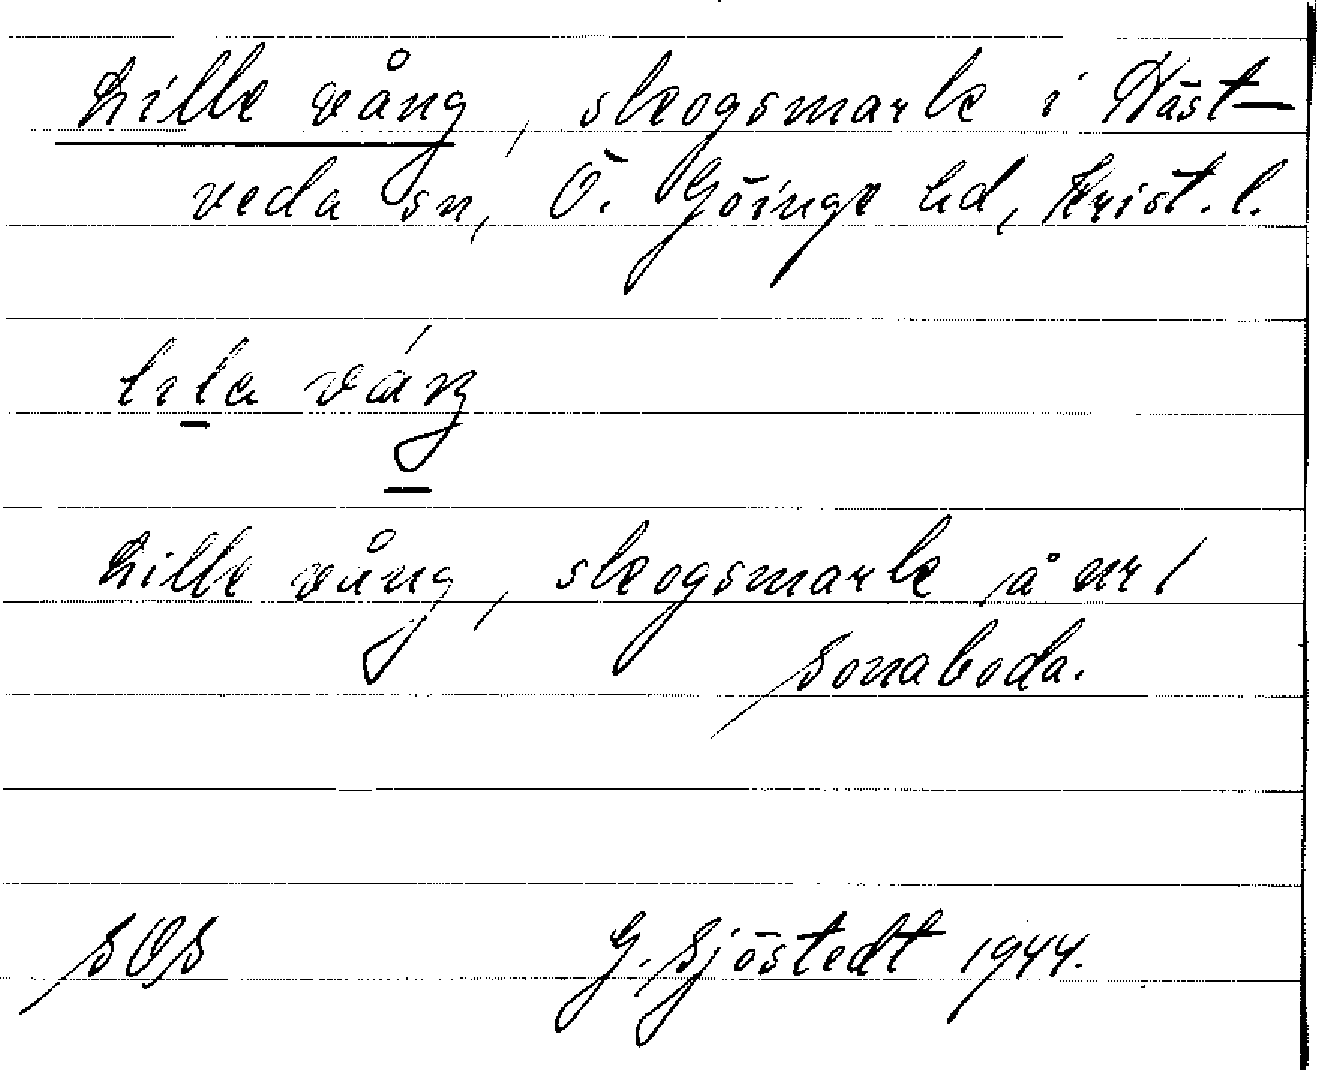 Lille vång, skogsmark i Väst-
veda sn, Ö. Göinge hd, Krist. l.
lila váŋ
Lille vång, skogsmark å nr 1
Sonaboda.
SOS G. Sjöstedt 1944.